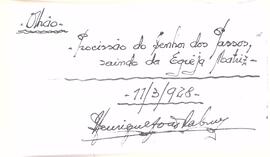 Olhão -
- Procissão do Senhor dos Passos,
saindo da Egreja Matriz -
- 11/3/928 -
Henrique